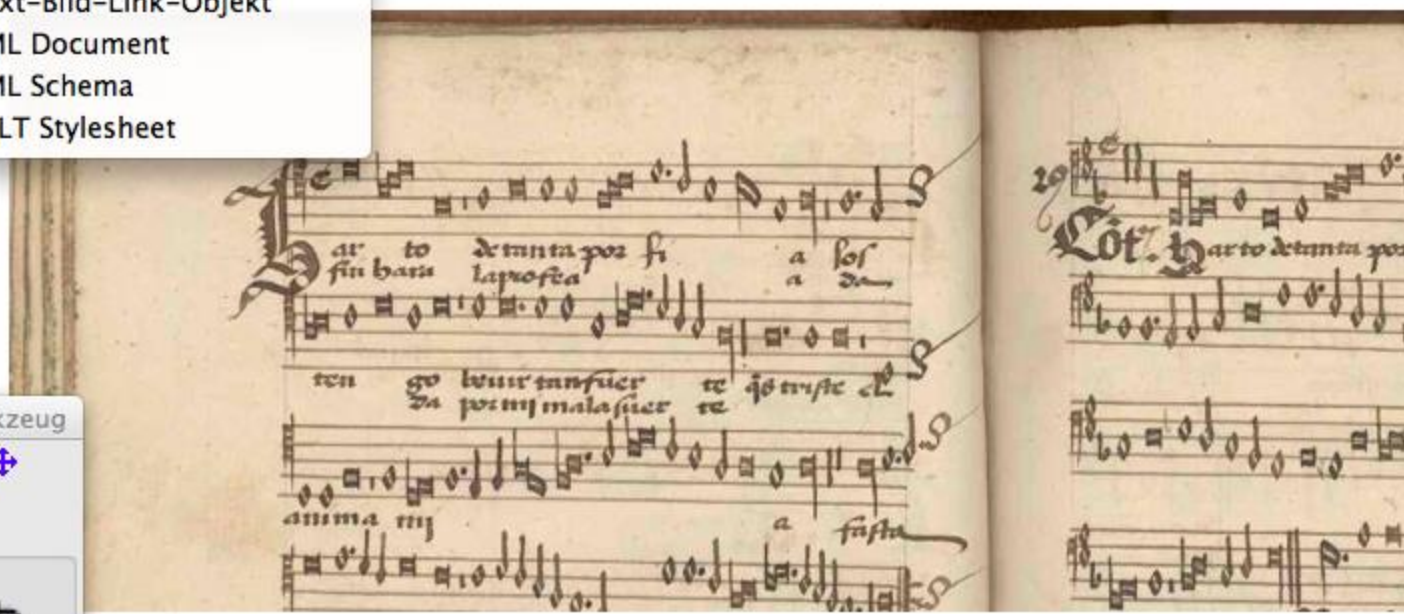 xt-Bild-Link-Objekt
ML Document
ML Schema
LT Stylesheet
kzeug
Har to de tanta por fi a sos
sin hara la profea a da
ten go beuir tan fuer te q̃s triste el
da por mj mala suer te
anima mj a fasta
29
Cõt. Harto de tanta por